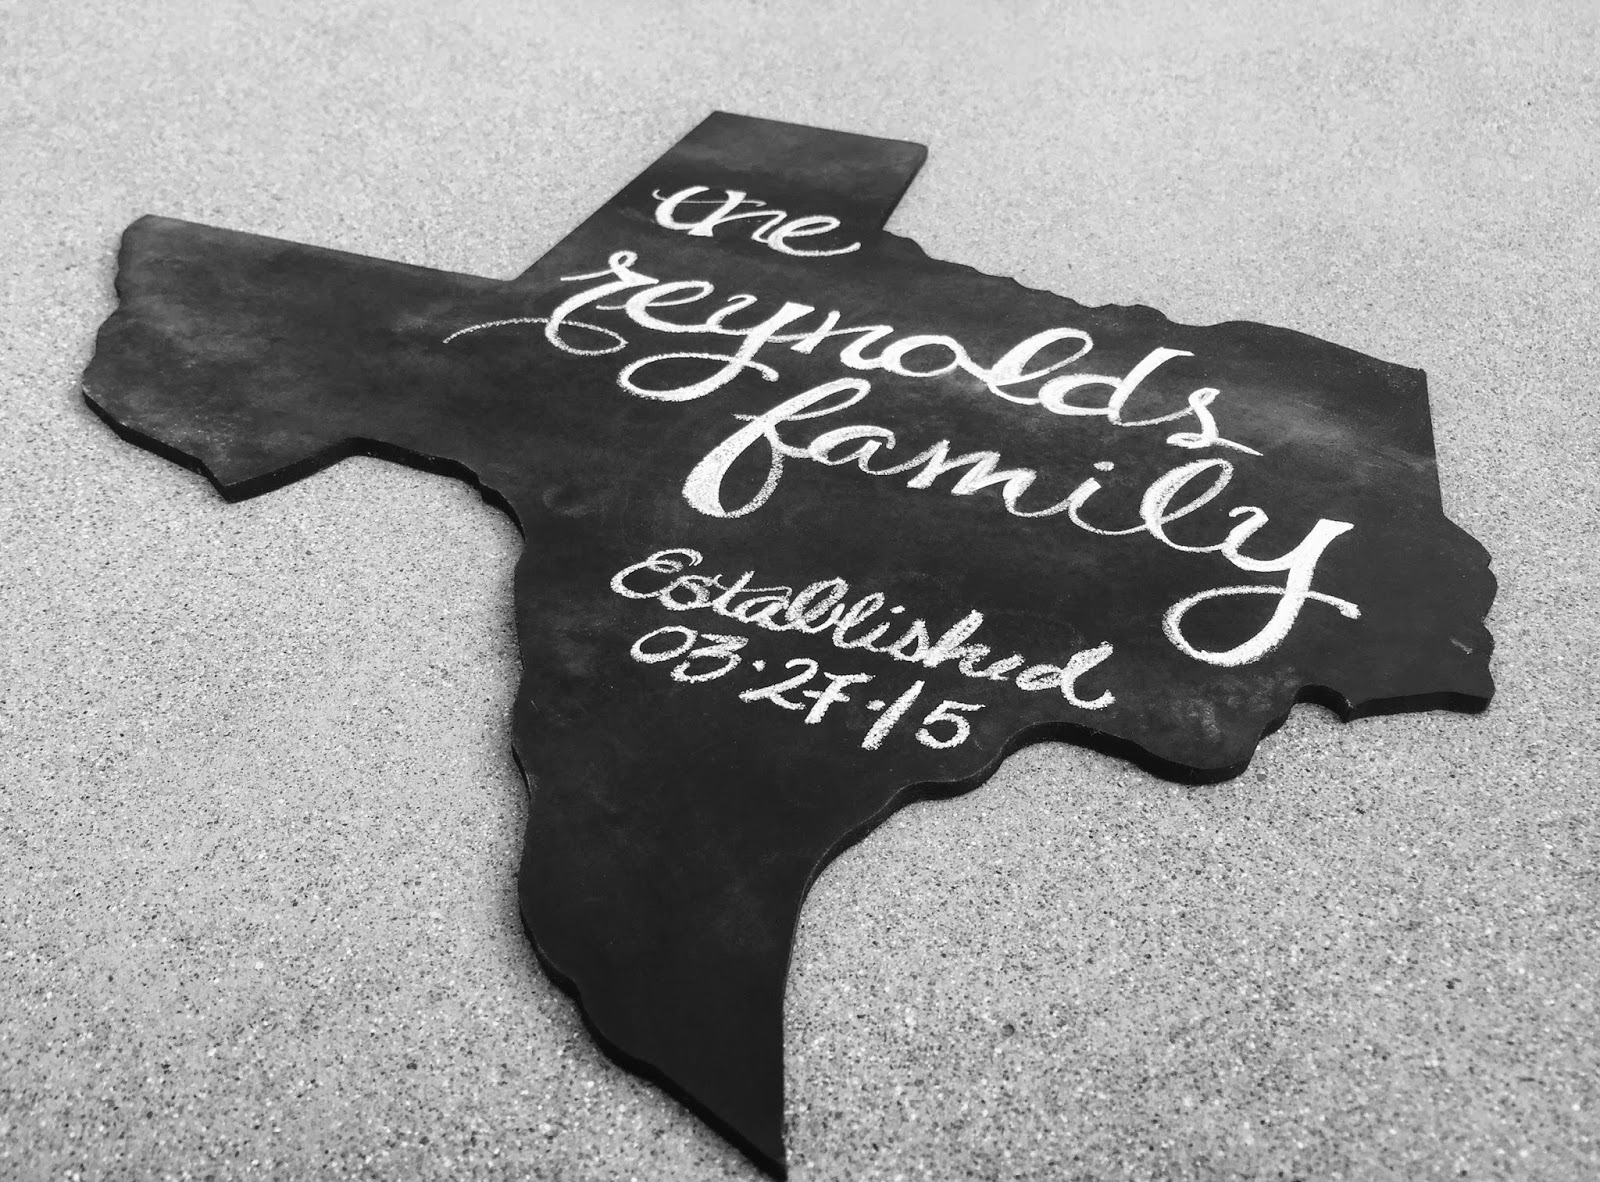 the
reynolds
family
Established
03.27.15